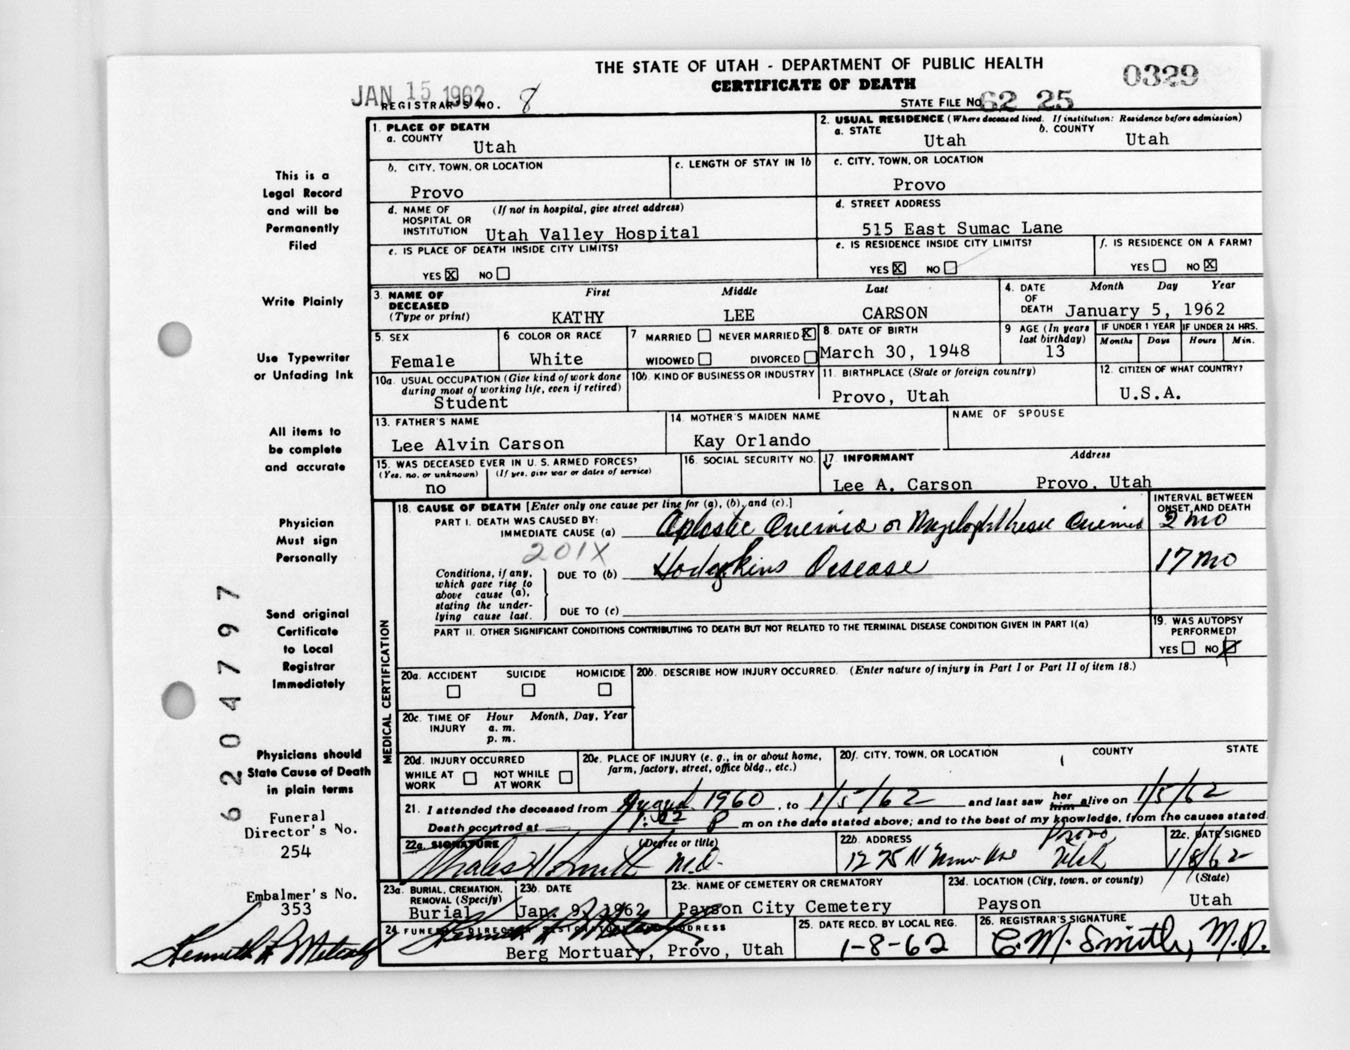 THE STATE OF UTAH - DEPARTMENT OF PUBLIC HEALTH
CERTIFICATE OF DEATH
0329
JAN 15 1962
REGISTRAR'S NO. 8
STATE FILE NO. 62 25
1. PLACE OF DEATH
a. COUNTY
Utah
2. USUAL RESIDENCE (Where deceased lived. If institution: Residence before admission)
a. STATE
Utah
b. COUNTY
Utah
b. CITY, TOWN, OR LOCATION
Provo
c. LENGTH OF STAY IN 1b
c. CITY, TOWN, OR LOCATION
Provo
d. NAME OF HOSPITAL OR INSTITUTION (If not in hospital, give street address)
Utah Valley Hospital
d. STREET ADDRESS
515 East Sumac Lane
e. IS PLACE OF DEATH INSIDE CITY LIMITS?
YES X NO
e. IS RESIDENCE INSIDE CITY LIMITS?
YES X NO
f. IS RESIDENCE ON A FARM?
YES NO X
3. NAME OF DECEASED (Type or print)
First Middle Last
KATHY LEE CARSON
4. DATE OF DEATH
Month Day Year
January 5, 1962
5. SEX
Female
6 COLOR OR RACE
White
7 MARRIED NEVER MARRIED X
WIDOWED DIVORCED
8. DATE OF BIRTH
March 30, 1948
9 AGE (In years last birthday)
13
IF UNDER 1 YEAR
Months Days
IF UNDER 24 HRS.
Hours Min.
10a. USUAL OCCUPATION (Give kind of work done during most of working life, even if retired)
Student
10b. KIND OF BUSINESS OR INDUSTRY
11. BIRTHPLACE (State or foreign country)
Provo, Utah
12. CITIZEN OF WHAT COUNTRY?
U.S.A.
13. FATHER'S NAME
Lee Alvin Carson
14. MOTHER'S MAIDEN NAME
Kay Orlando
NAME OF SPOUSE
15. WAS DECEASED EVER IN U. S. ARMED FORCES?
(Yes, no, or unknown) (If yes, give war or dates of service)
no
16. SOCIAL SECURITY NO.
17. INFORMANT Address
Lee A. Carson Provo, Utah
MEDICAL CERTIFICATION
18. CAUSE OF DEATH [Enter only one cause per line for (a), (b), and (c).]
INTERVAL BETWEEN ONSET AND DEATH
PART I. DEATH WAS CAUSED BY:
IMMEDIATE CAUSE (a) Aplastic Anemia or Myelophthisic Anemia
2 mo
201X
Conditions, if any, which gave rise to above cause (a), stating the underlying cause last.
DUE TO (b) Hodgkins Disease
17 mo
DUE TO (c)
PART II. OTHER SIGNIFICANT CONDITIONS CONTRIBUTING TO DEATH BUT NOT RELATED TO THE TERMINAL DISEASE CONDITION GIVEN IN PART I(a)
19. WAS AUTOPSY PERFORMED?
YES NO
20a. ACCIDENT SUICIDE HOMICIDE
20b. DESCRIBE HOW INJURY OCCURRED. (Enter nature of injury in Part I or Part II of item 18.)
20c. TIME OF INJURY
Hour Month, Day, Year
a. m.
p. m.
20d. INJURY OCCURRED
WHILE AT WORK NOT WHILE AT WORK
20e. PLACE OF INJURY (e. g., in or about home, farm, factory, street, office bldg., etc.)
20f. CITY, TOWN, OR LOCATION COUNTY STATE
21. I attended the deceased from August 1960, to 1/5/62 and last saw her him alive on 1/5/62
Death occurred at m on the date stated above; and to the best of my knowledge, from the causes stated.
22a. SIGNATURE (Degree or title)
Smith M.D.
22b. ADDRESS
1275 N Provo Utah
22c. DATE SIGNED
1/8/62
23a. BURIAL, CREMATION, REMOVAL (Specify)
Burial
23b. DATE
Jan. 9, 1962
23c. NAME OF CEMETERY OR CREMATORY
Payson City Cemetery
23d. LOCATION (City, town, or county) (State)
Payson Utah
24 FUNERAL DIRECTOR'S ADDRESS
Berg Mortuary, Provo, Utah
25. DATE RECD. BY LOCAL REG.
1-8-62
26. REGISTRAR'S SIGNATURE
C. M. Smith, M.D.
This is a
Legal Record
and will be
Permanently
Filed
Write Plainly
Use Typewriter
or Unfading Ink
All items to
be complete
and accurate
Physician
Must sign
Personally
Send original
Certificate
to Local
Registrar
Immediately
Physicians should
State Cause of Death
in plain terms
Funeral
Director's No.
254
Embalmer's No.
353
Kenneth
6204797